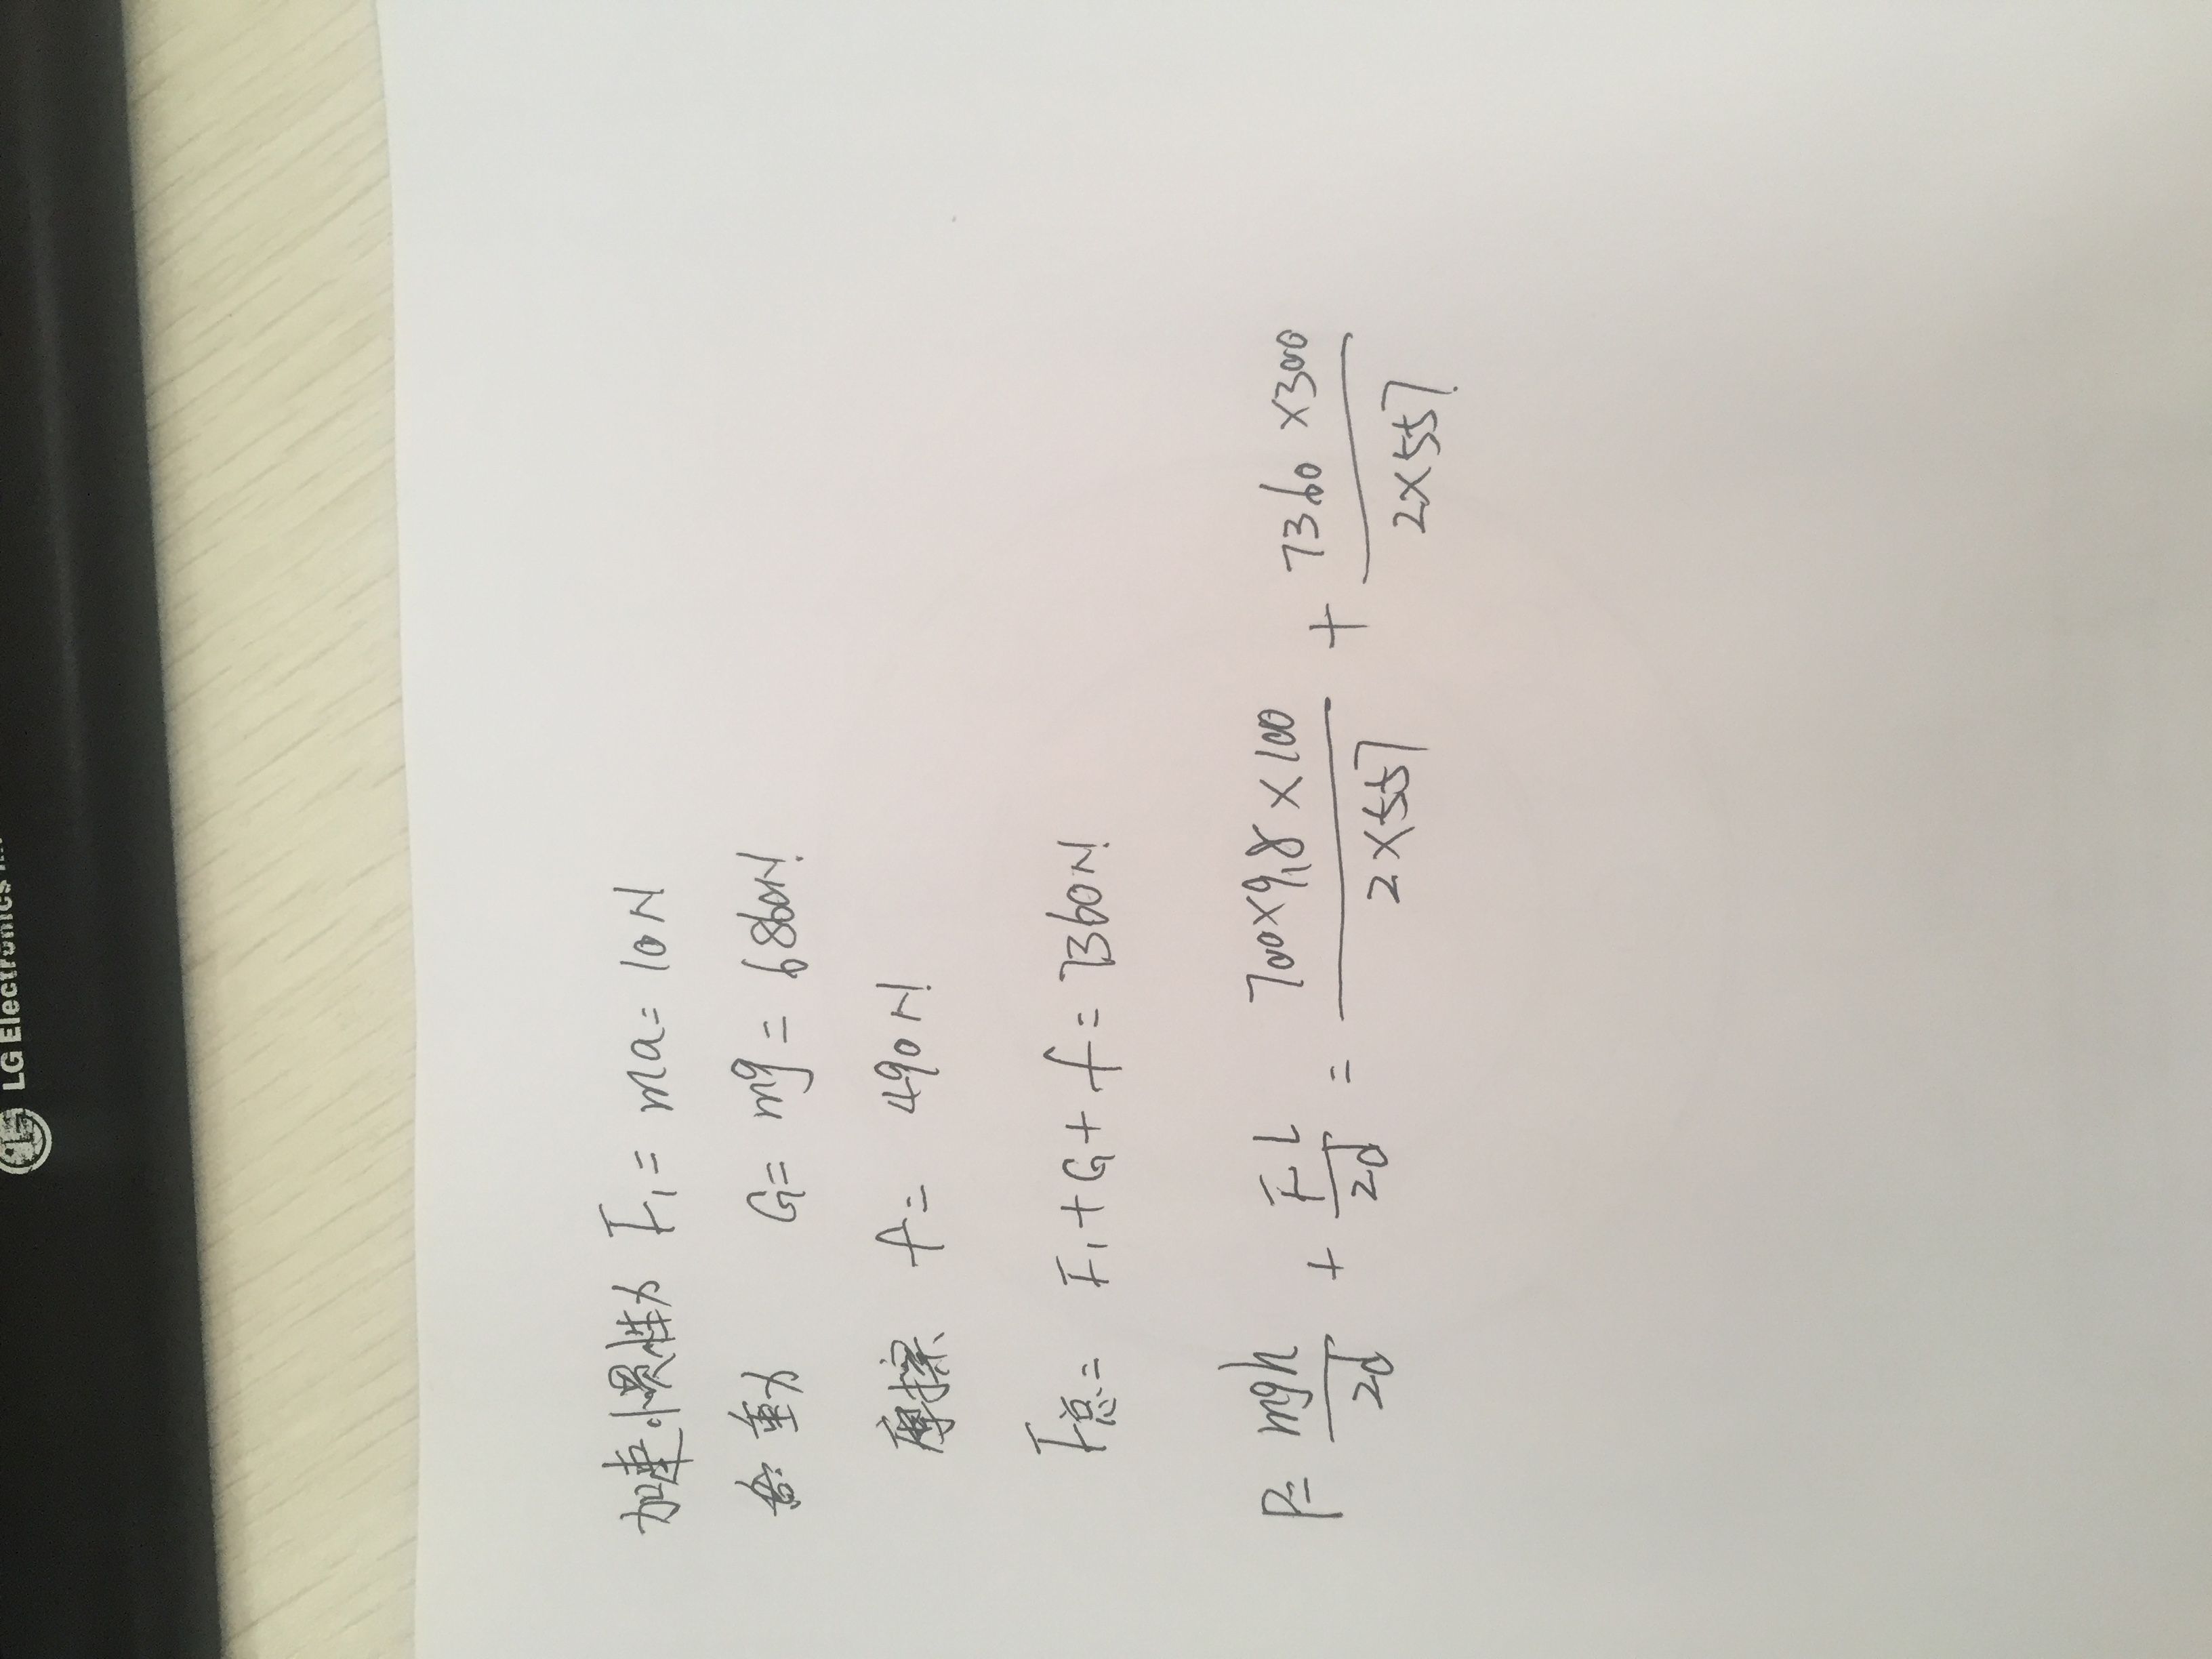 LG Electronics
加速惯性力 F₁ = ma = 10N
重力 G = mg = 6860N!
摩擦 f = 490N!
F总 = F₁ + G + f = 7360N!
P = mgh/2J + FL/2J = 700×9.8×100/2×557 + 7360×300/2×557